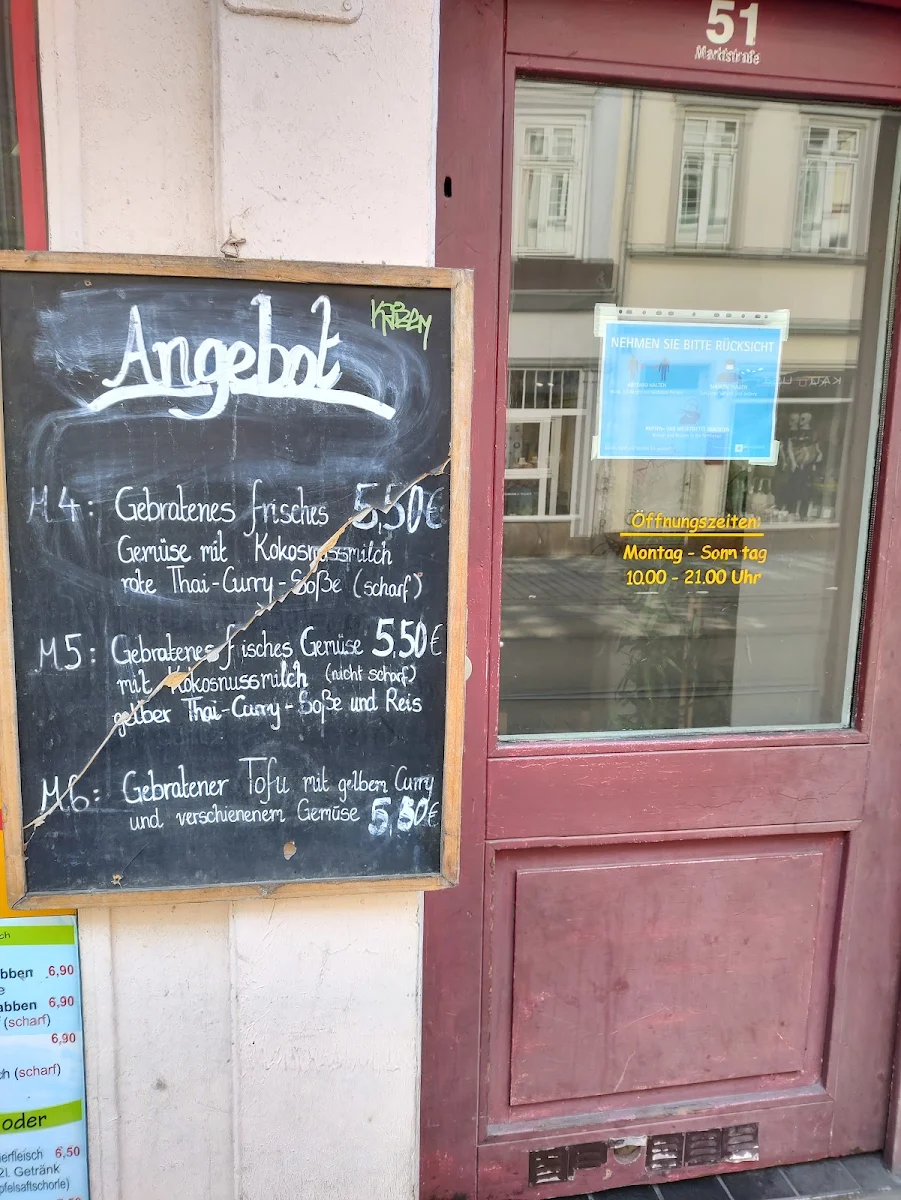 51
Marktstraße
Angebot
M4: Gebratenes frisches 5,50€
Gemüse mit Kokosnussmilch
rote Thai-Curry-Soße (scharf)
M5: Gebratenes f isches Gemüse 5,50€
mit Kokosnussmilch (nicht scharf)
gelber Thai-Curry-Soße und Reis
M6: Gebratener Tofu mit gelbem Curry
und verschienenem Gemüse 5,50€
NEHMEN SIE BITTE RÜCKSICHT
Öffnungszeiten:
Montag - Sonntag
10.00 - 21.00 Uhr
bben 6,90
abben 6,90
(scharf)
6,90
ch (scharf)
oder
erfleisch 6,50
2l. Getränk
pfelsaftschorle)